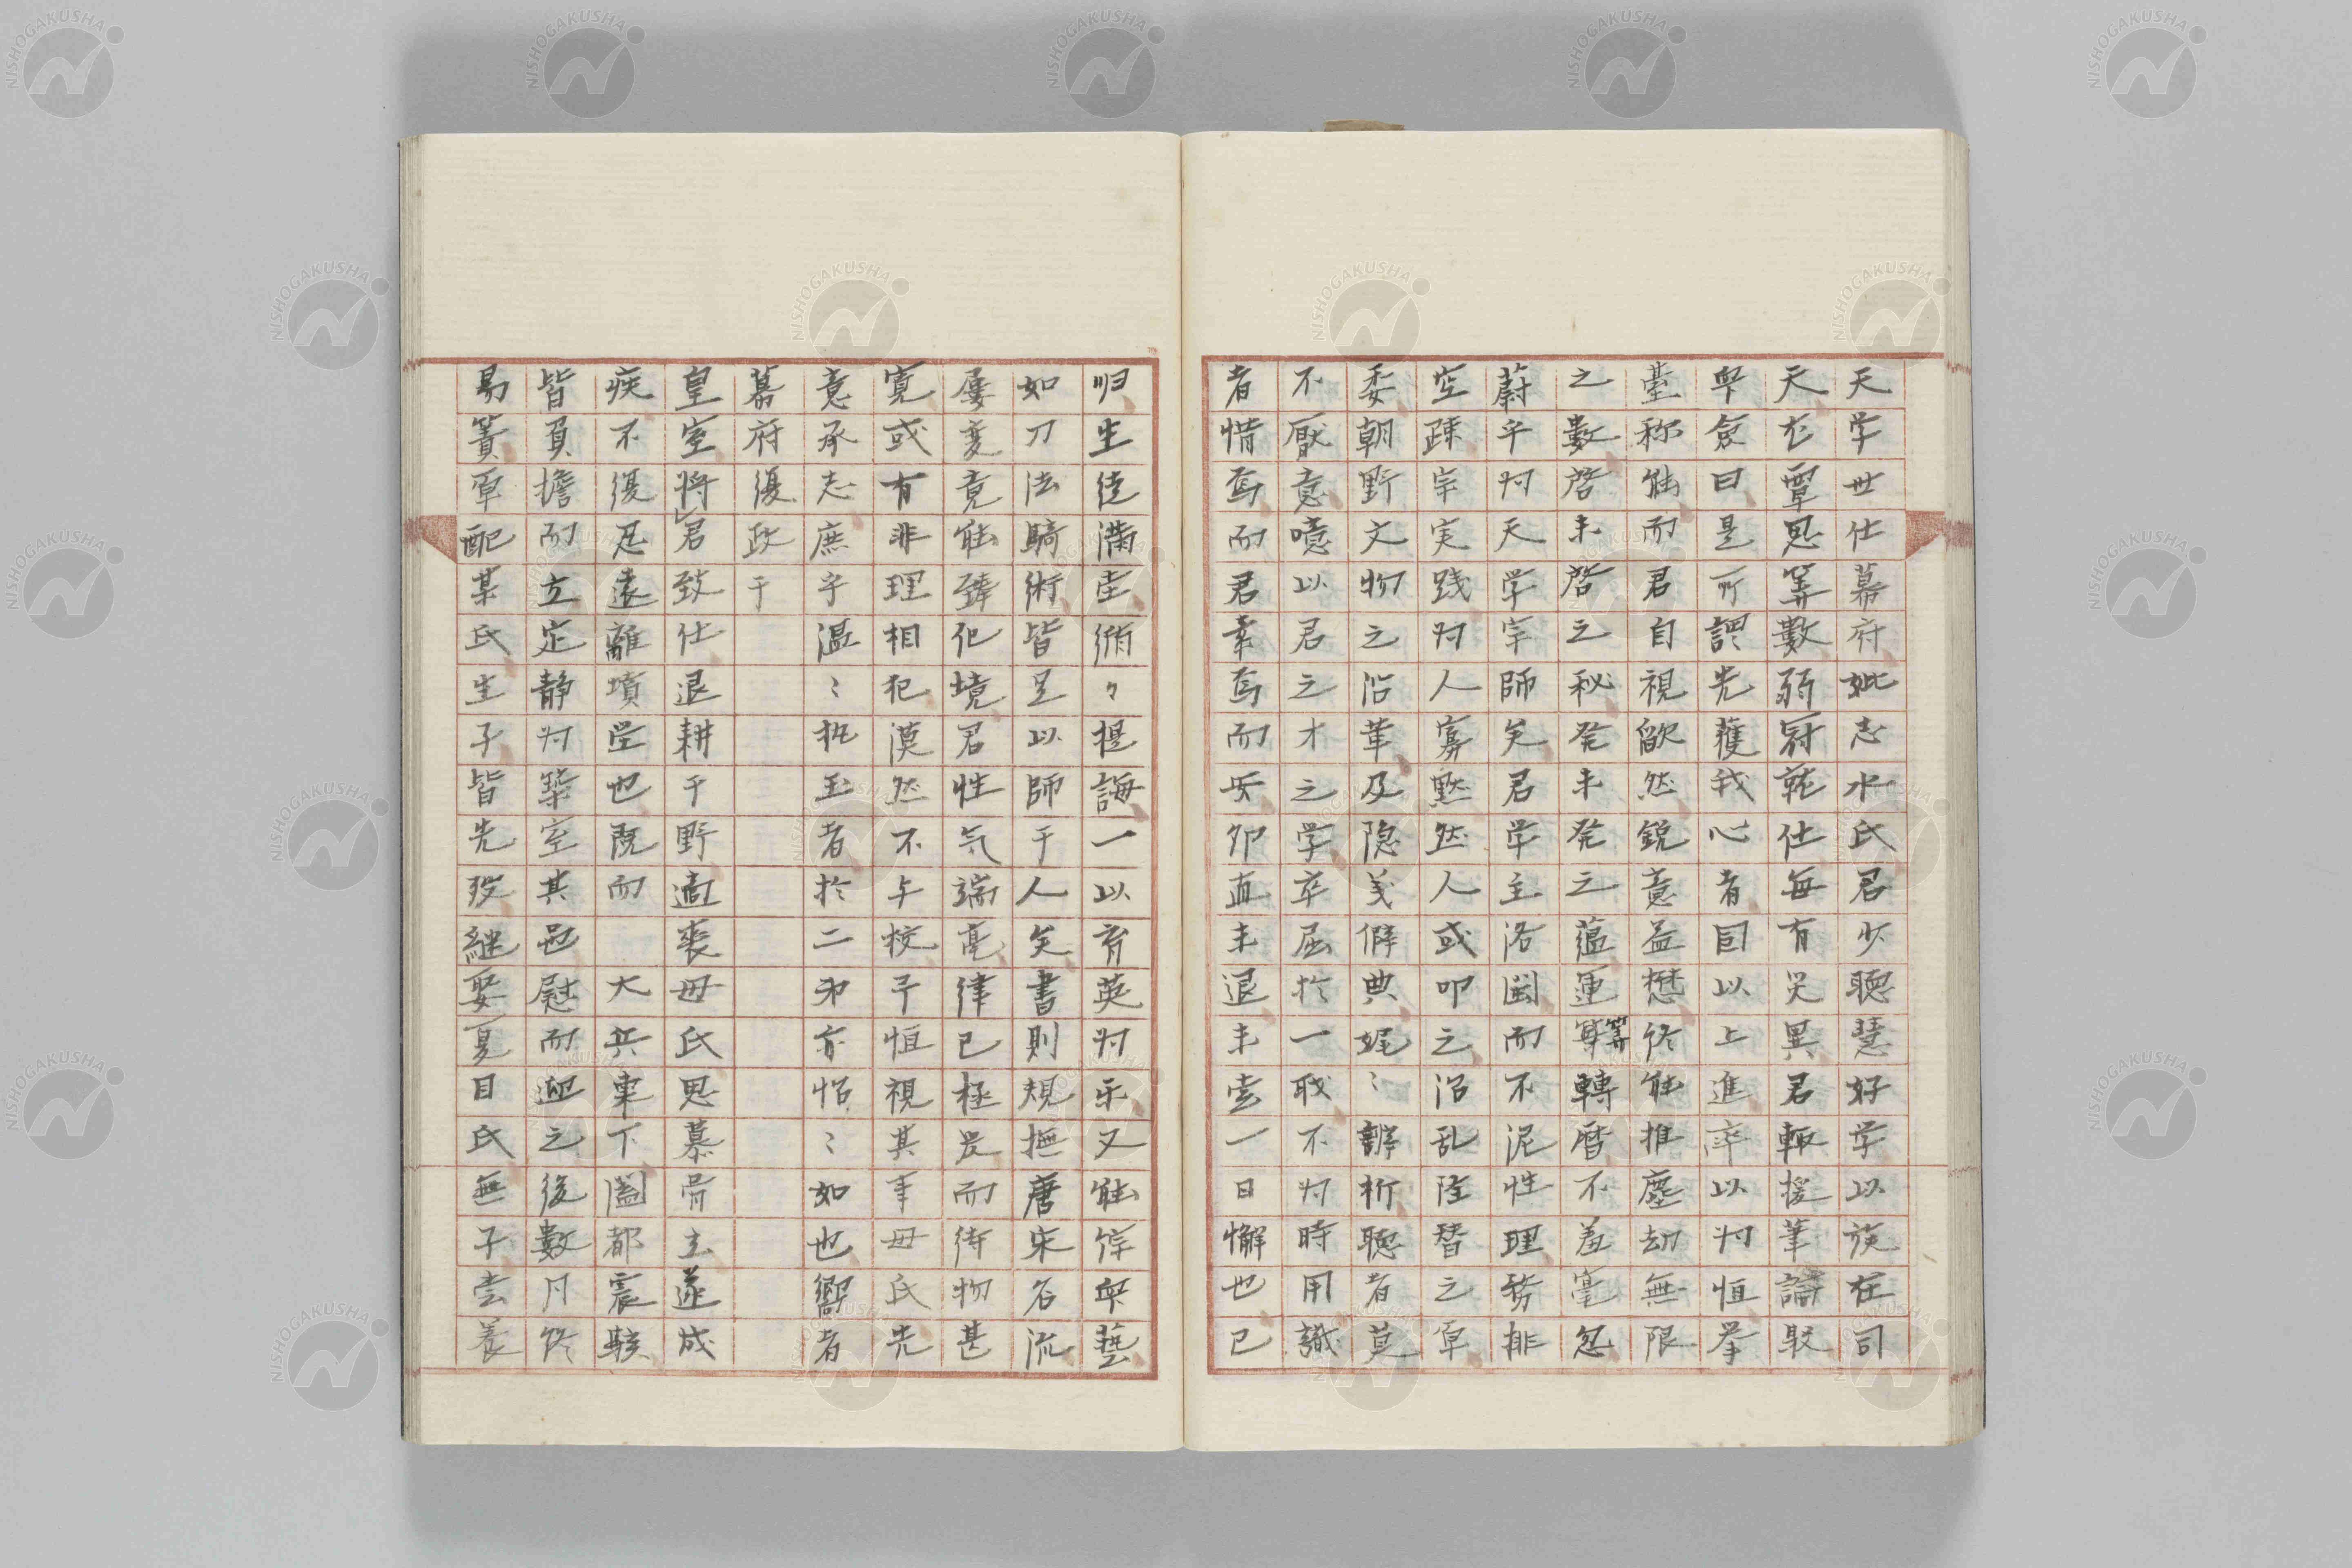 天学世仕幕府妣志水氏君少聰慧好学以族在司
天尤覃思筭數弱冠蓰仕毎有災異君輙援筆論駁
卑僉曰是所謂先獲我心者因以上進率以为恒挙
臺称能而君自視歈然鋭意益懋終能推塵劫無限
之數啓未啓之秘発未発之蘊運筭轉暦不差毫忽
蔚乎为天学宗師矣君学主洛閩而不泥性理務排
空疎宗実践为人寡黙然人或叩之治乱隆替之原
委朝野文物之沿革及隐义僻典娓〻辨析聴者莫
不厭意噫以君之才之学卒屈於一职不为時用識
者惜焉而君素焉而安夘直未退未嘗一日懈也已
归生徒满堂循〻提誨一以育英为乐又能倅卑藝
如刀法騎術皆足以師于人矣書則規撫唐宋名流
屡変竟能臻化境君性気端亮律己極炭而待物甚
寛或有非理相犯漠然不与校于恒視其事毋氏先
意承志庶乎温〻执玉者於二弟亦怡〻如也嚮者
幕府復政于
皇室将君致仕退耕于野適丧母氏思慕骨立遂成
疾不復忍遠離墳茔也既而大兵東下闔都震駭
皆負擔而立定静为築室其邑慰而迎之後數月終
易簀原配某氏生子皆先歿継娶夏目氏無子尝養